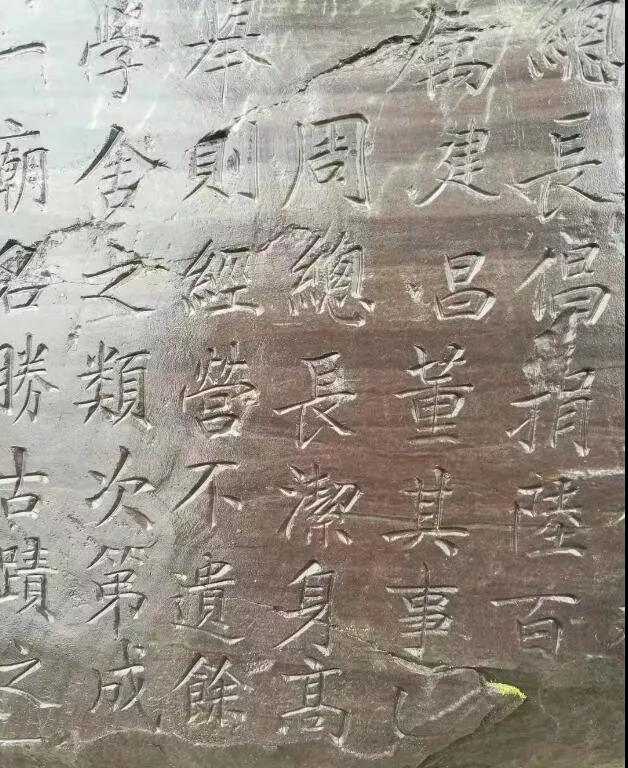 總長倡捐陸百
厲建昌董其事
周總長潔身高
舉則經營不遺餘
學舍之類次第成
廟名勝古蹟之